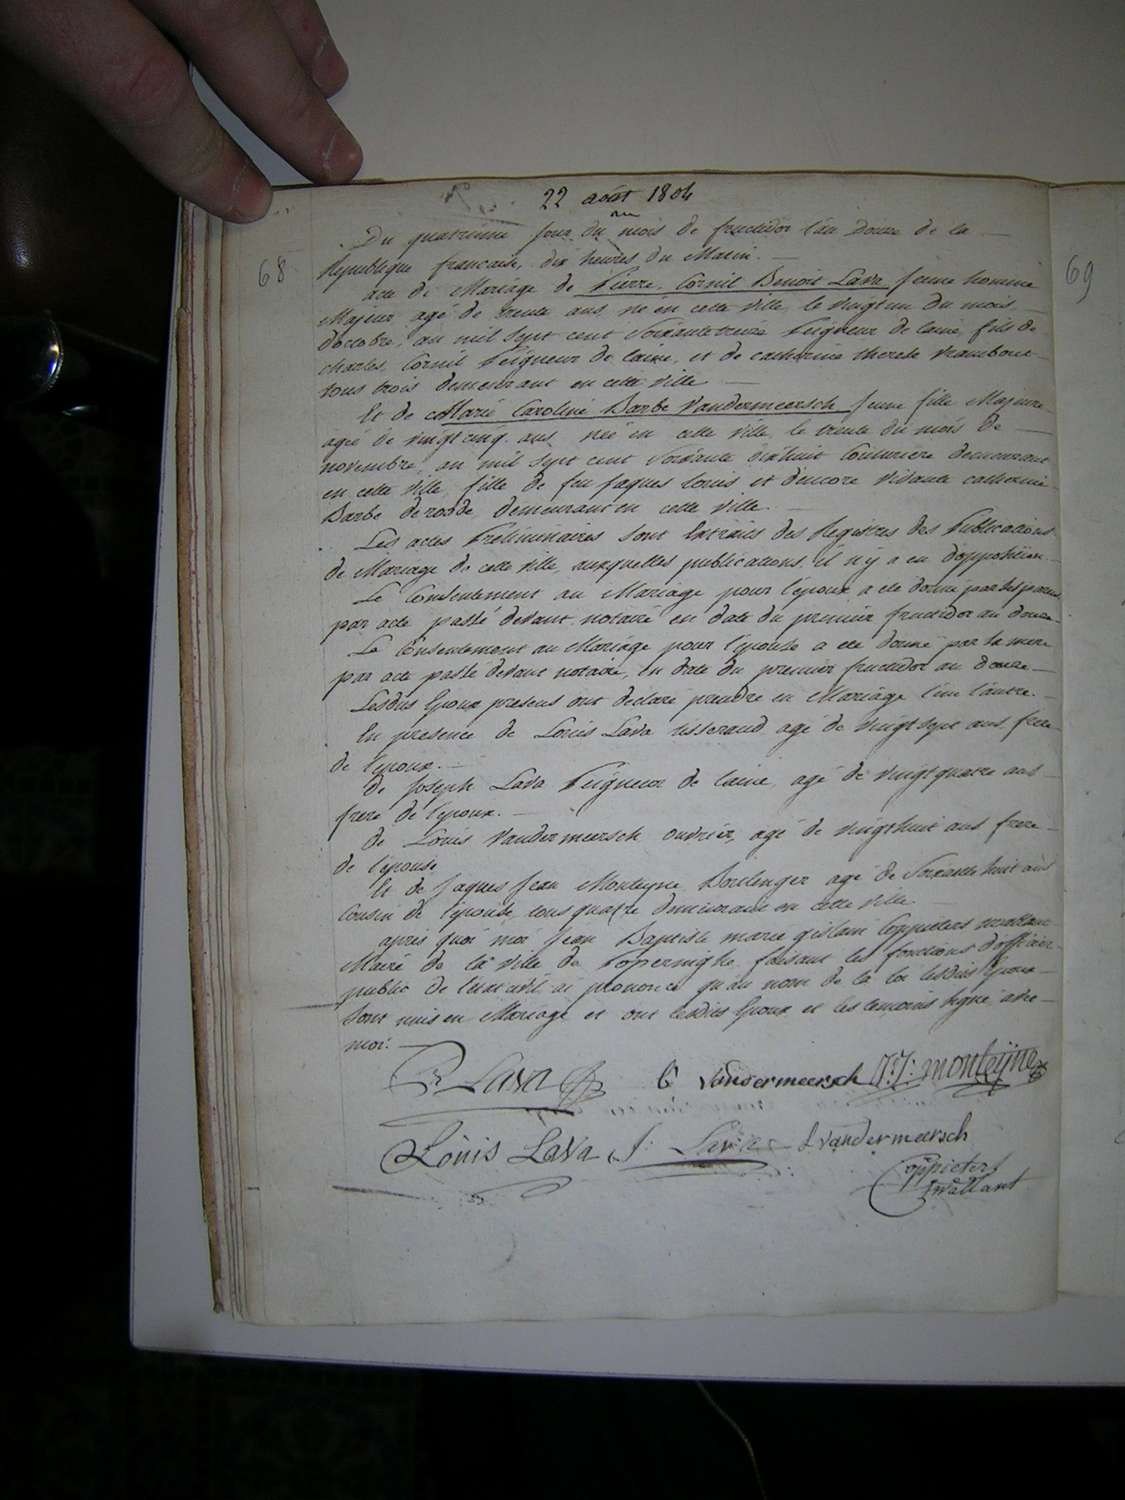 22 août 1804
68
69
Du quatrieme jour du mois de fructidor l'an Douze de la
Republique francaise, dix heures du Matin.
acte de Mariage de Pierre Cornil Benoit Lava jeune homme
Majeur agé de trente ans né en cette Ville, le vingt un du mois
d'octobre, an mil sept cent Soixantetreize Peigneur de laine, fils de
charles Cornil Peigneur de laine, et de catherine therese
tous trois demeurant en cette Ville
Et de Marie Caroline Barbe Vandermeersch jeune fille Majeure
agée de vingt cinq ans née en cette Ville, le trente du mois de
novembre, an mil sept cent Soixante dixhuit Couturiere demeurant
en cette Ville fille de feu Jaques Louis et d'encore Vivante catherine
Barbe derodde, demeurant en cette Ville.
Les actes Préliminaires sont Extraits des Registres des Publications
de Mariage de cette Ville, auxquelles publications il n'y a eu d'opposition
Le Consentement au Mariage pour l'époux a été donné par
par acte passé devant notaire en date du premier fructidor an douze
Le Consentement au Mariage pour l'épouse a été donné par la mere
par acte passé devant notaire, en date du premier fructidor an douze
Lesdits Epoux presens ont declaré prendre en Mariage l'un l'autre.
En presence de Louis Lava tisserand agé de vingt sept ans frere
de l'epoux.
de Joseph Lava Peigneur de laine, agé de vingt quatre ans
frere de l'epoux.
de Louis Vandermeersch ouvrier, agé de vingt huit ans frere
de l'epouse
Et de Jaques Jean Monteyne Boulenger agé de Soixante huit ans
Cousin de l'épouse, tous quatre demeurant en cette Ville
après quoi moi Jean Baptiste marie gislain Coppieters
Maire de la Ville de Poperinghe faisant les fonctions d'officier
public de l'état civil ai prononcé qu'au nom de la loi lesdits Epoux
sont unis en Mariage et ont lesdits Epoux et les temoins signé avec
moi.
P Lava C Vandermeersch J:J: monteÿne
Louis Lava J: Lava L vandermeersch
Coppieters
Twallant